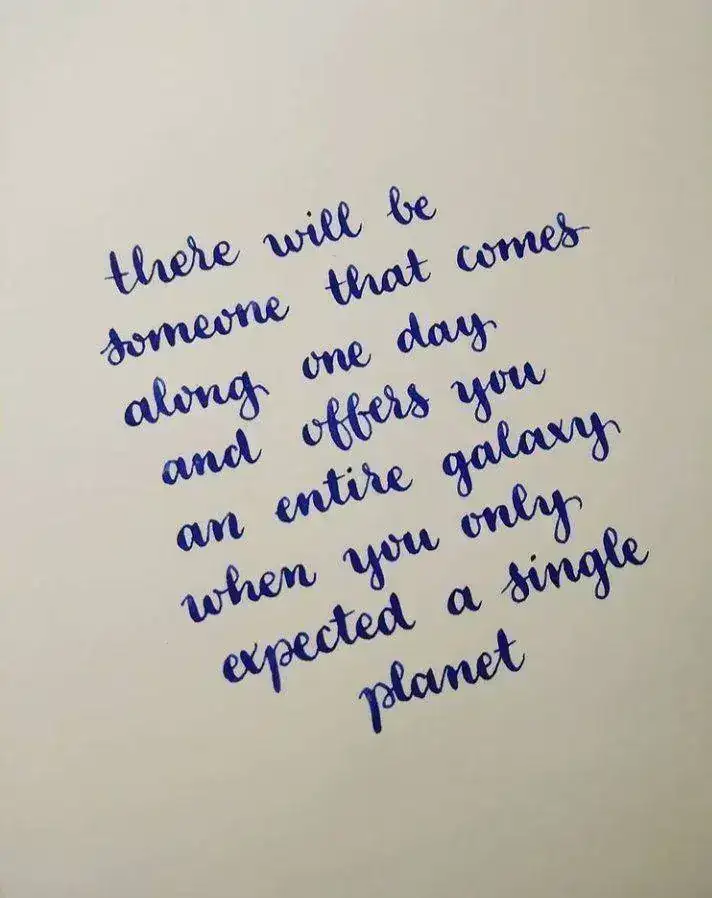 there will be
someone that comes
along one day
and offers you
an entire galaxy
when you only
expected a single
planet